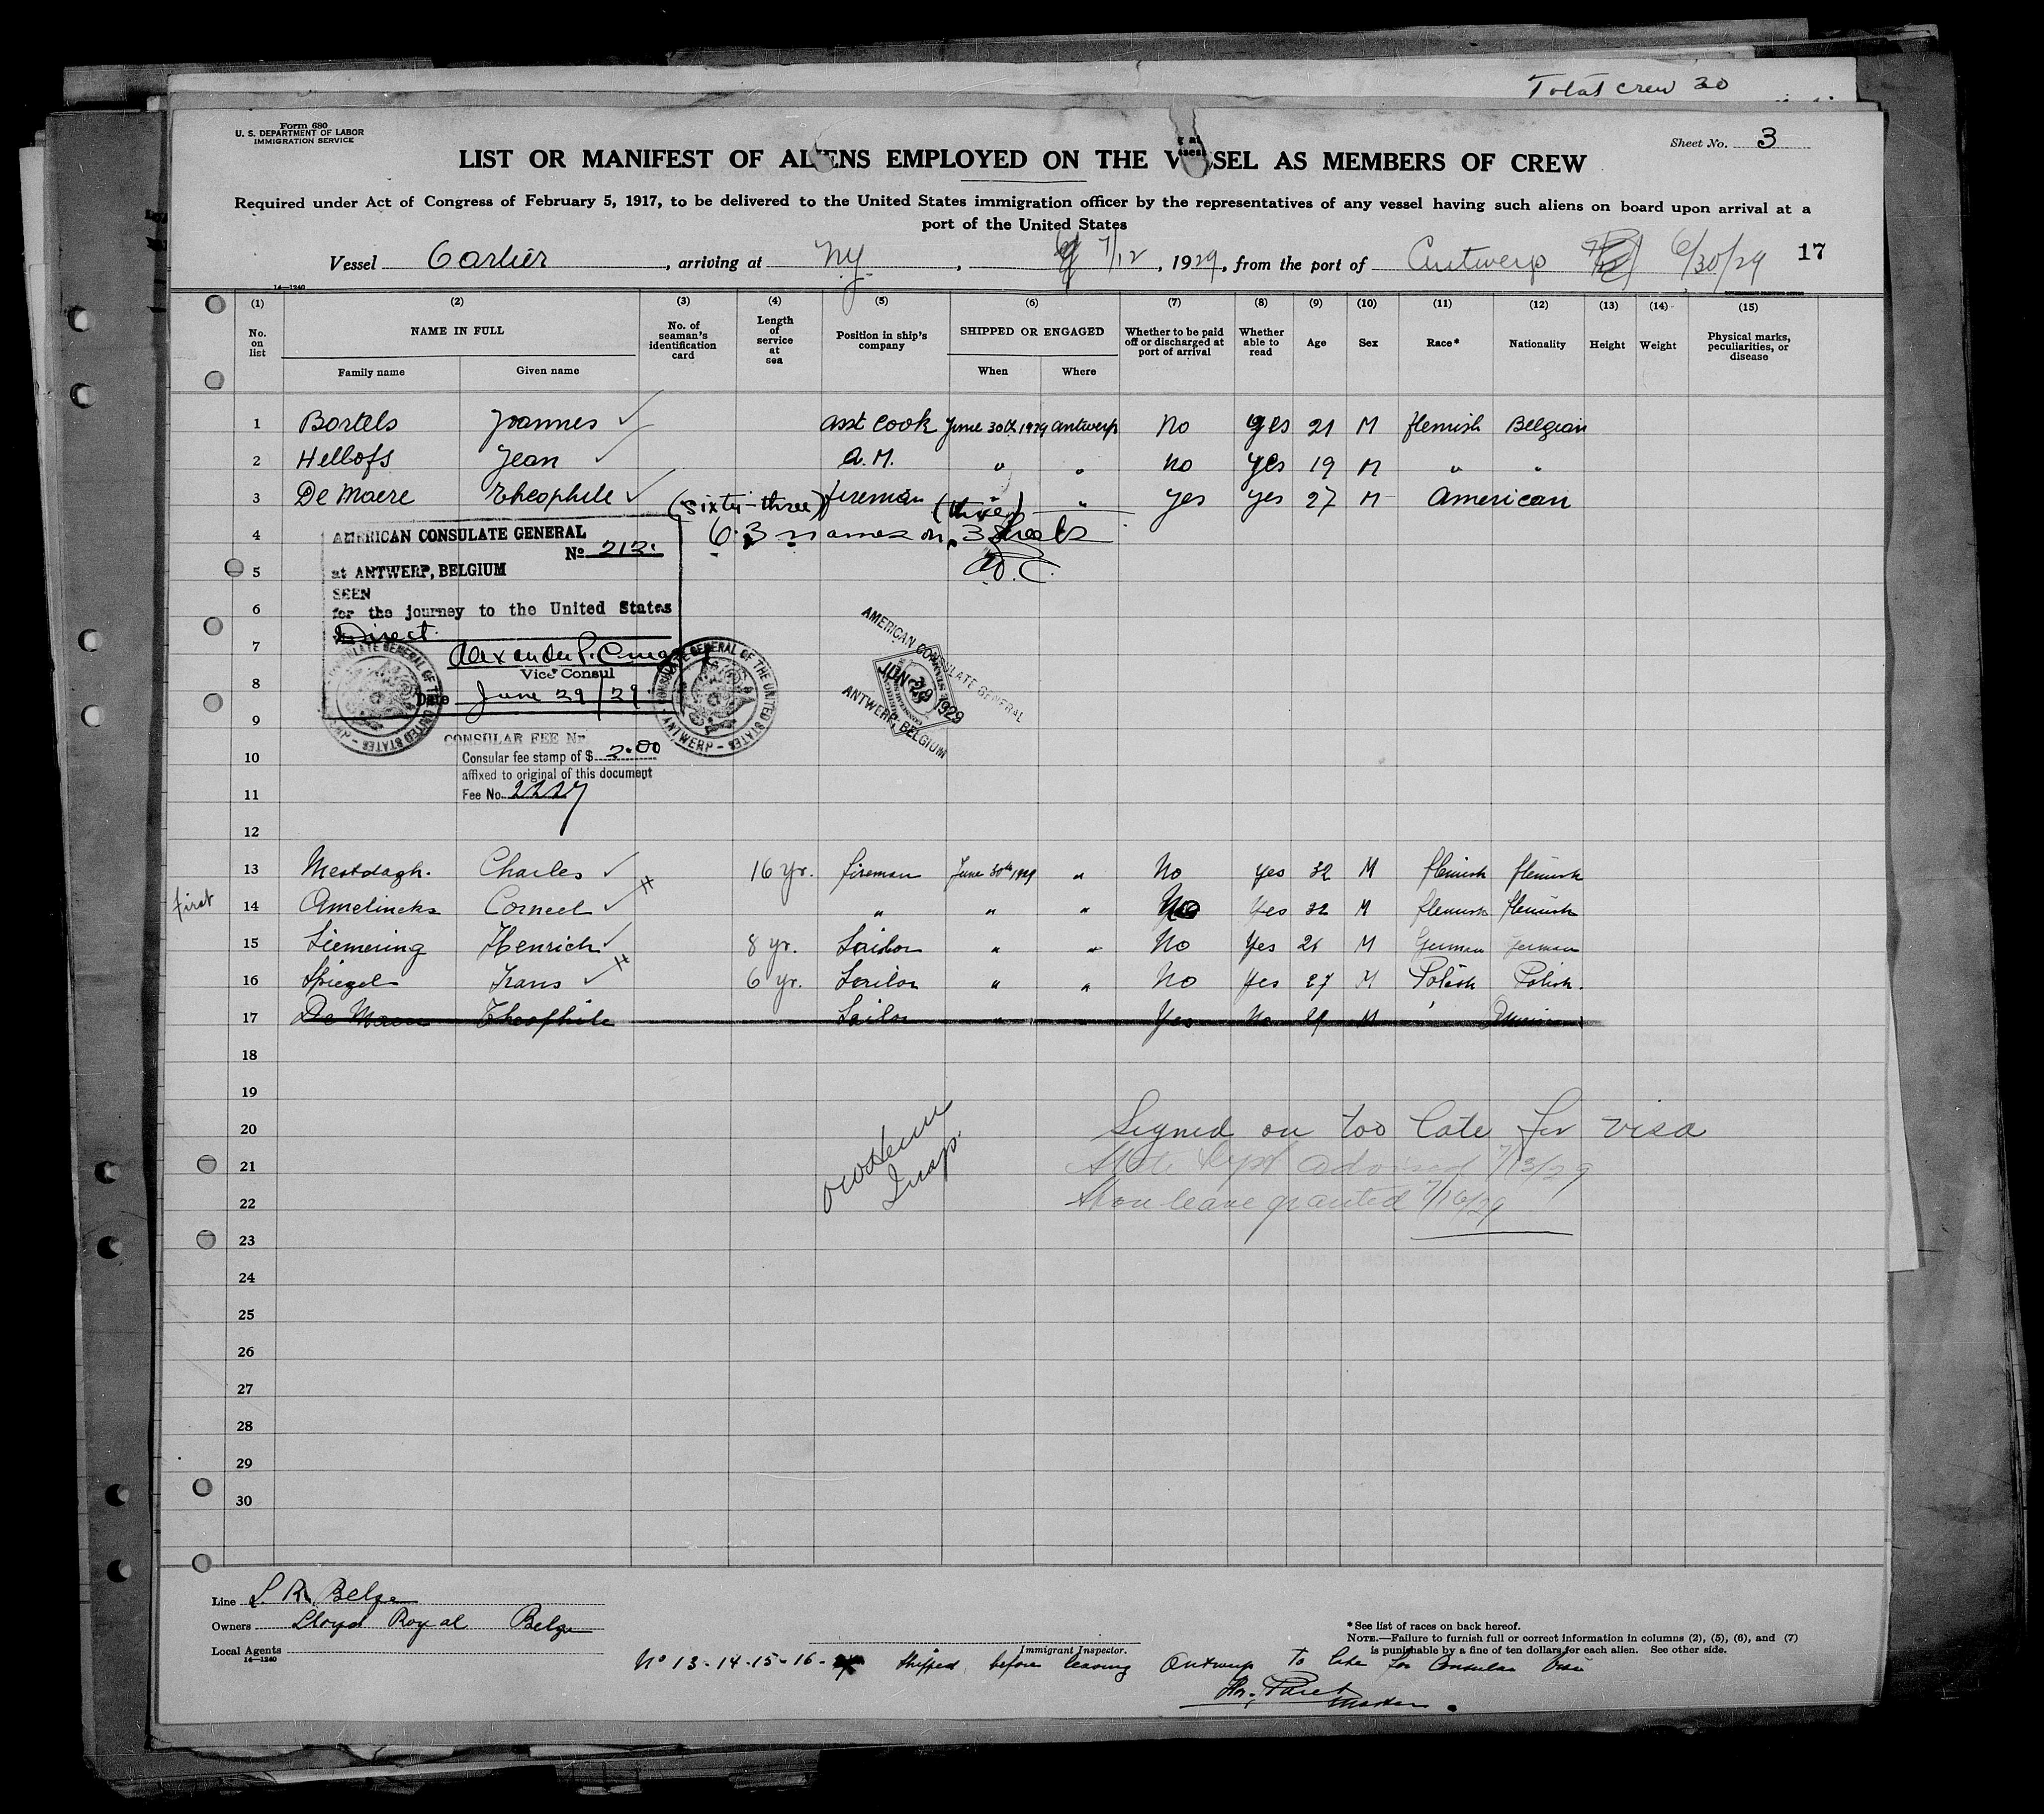 Total crew 30
Form 680
U. S. DEPARTMENT OF LABOR
IMMIGRATION SERVICE
Sheet No. 3
LIST OR MANIFEST OF ALIENS EMPLOYED ON THE VESSEL AS MEMBERS OF CREW
Required under Act of Congress of February 5, 1917, to be delivered to the United States immigration officer by the representatives of any vessel having such aliens on board upon arrival at a
port of the United States
Vessel Carlier, arriving at NY, 7/12, 1929, from the port of Antwerp 6/30/29 17
14—1240
(1) (2) (3) (4) (5) (6) (7) (8) (9) (10) (11) (12) (13) (14) (15)
No. on list NAME IN FULL No. of seaman's identification card Length of service at sea Position in ship's company SHIPPED OR ENGAGED Whether to be paid off or discharged at port of arrival Whether able to read Age Sex Race* Nationality Height Weight Physical marks, peculiarities, or disease
Family name Given name When Where
1 Bortels Joannes asst cook June 30th 1929 Antwerp No yes 21 M flemish Belgian
2 Hellofs Jean a.M. " " No yes 19 M " "
3 De Maere Theophile fireman " " yes yes 27 M American
(sixty-three) (three)
4 63 names on 3 sheets
AMERICAN CONSULATE GENERAL
No 212
5 at ANTWERP, BELGIUM
SEEN
6 for the journey to the United States
Direct
7
Vice Consul
8 Date June 29/29
AMERICAN CONSULATE GENERAL
JUN 29 1929
ANTWERP, BELGIUM
9
CONSULAR FEE Nr
10 Consular fee stamp of $ 2.00
affixed to original of this document
11 Fee No. 2227
12
13 Mestdagh. Charles 16 yr. fireman June 30th 1929 " No yes 32 M flemish flemish
first 14 Amelinckx Corneel " " " No Yes 32 M flemish flemish
15 Siemering Henrich 8 yr. Sailor " " No Yes 26 M German German
16 Spiegel Frans 6 yr. Sailor " " No Yes 27 M Polish Polish.
17 De Maere Theophile Sailor " Yes No 29 M American
18
19
20 Signed on too late for visa
21 State Dept advised 7/13/29
22 Shore leave granted 7/16/29
Insp.
23
24
25
26
27
28
29
30
Line L. R. Belge
Owners Lloyd Royal Belge
Local Agents
14—1240
Immigrant Inspector.
*See list of races on back hereof.
NOTE.—Failure to furnish full or correct information in columns (2), (5), (6), and (7)
is punishable by a fine of ten dollars for each alien. See other side.
No 13-14-15-16- shipped before leaving Antwerp to late for Consular Visa
Master.